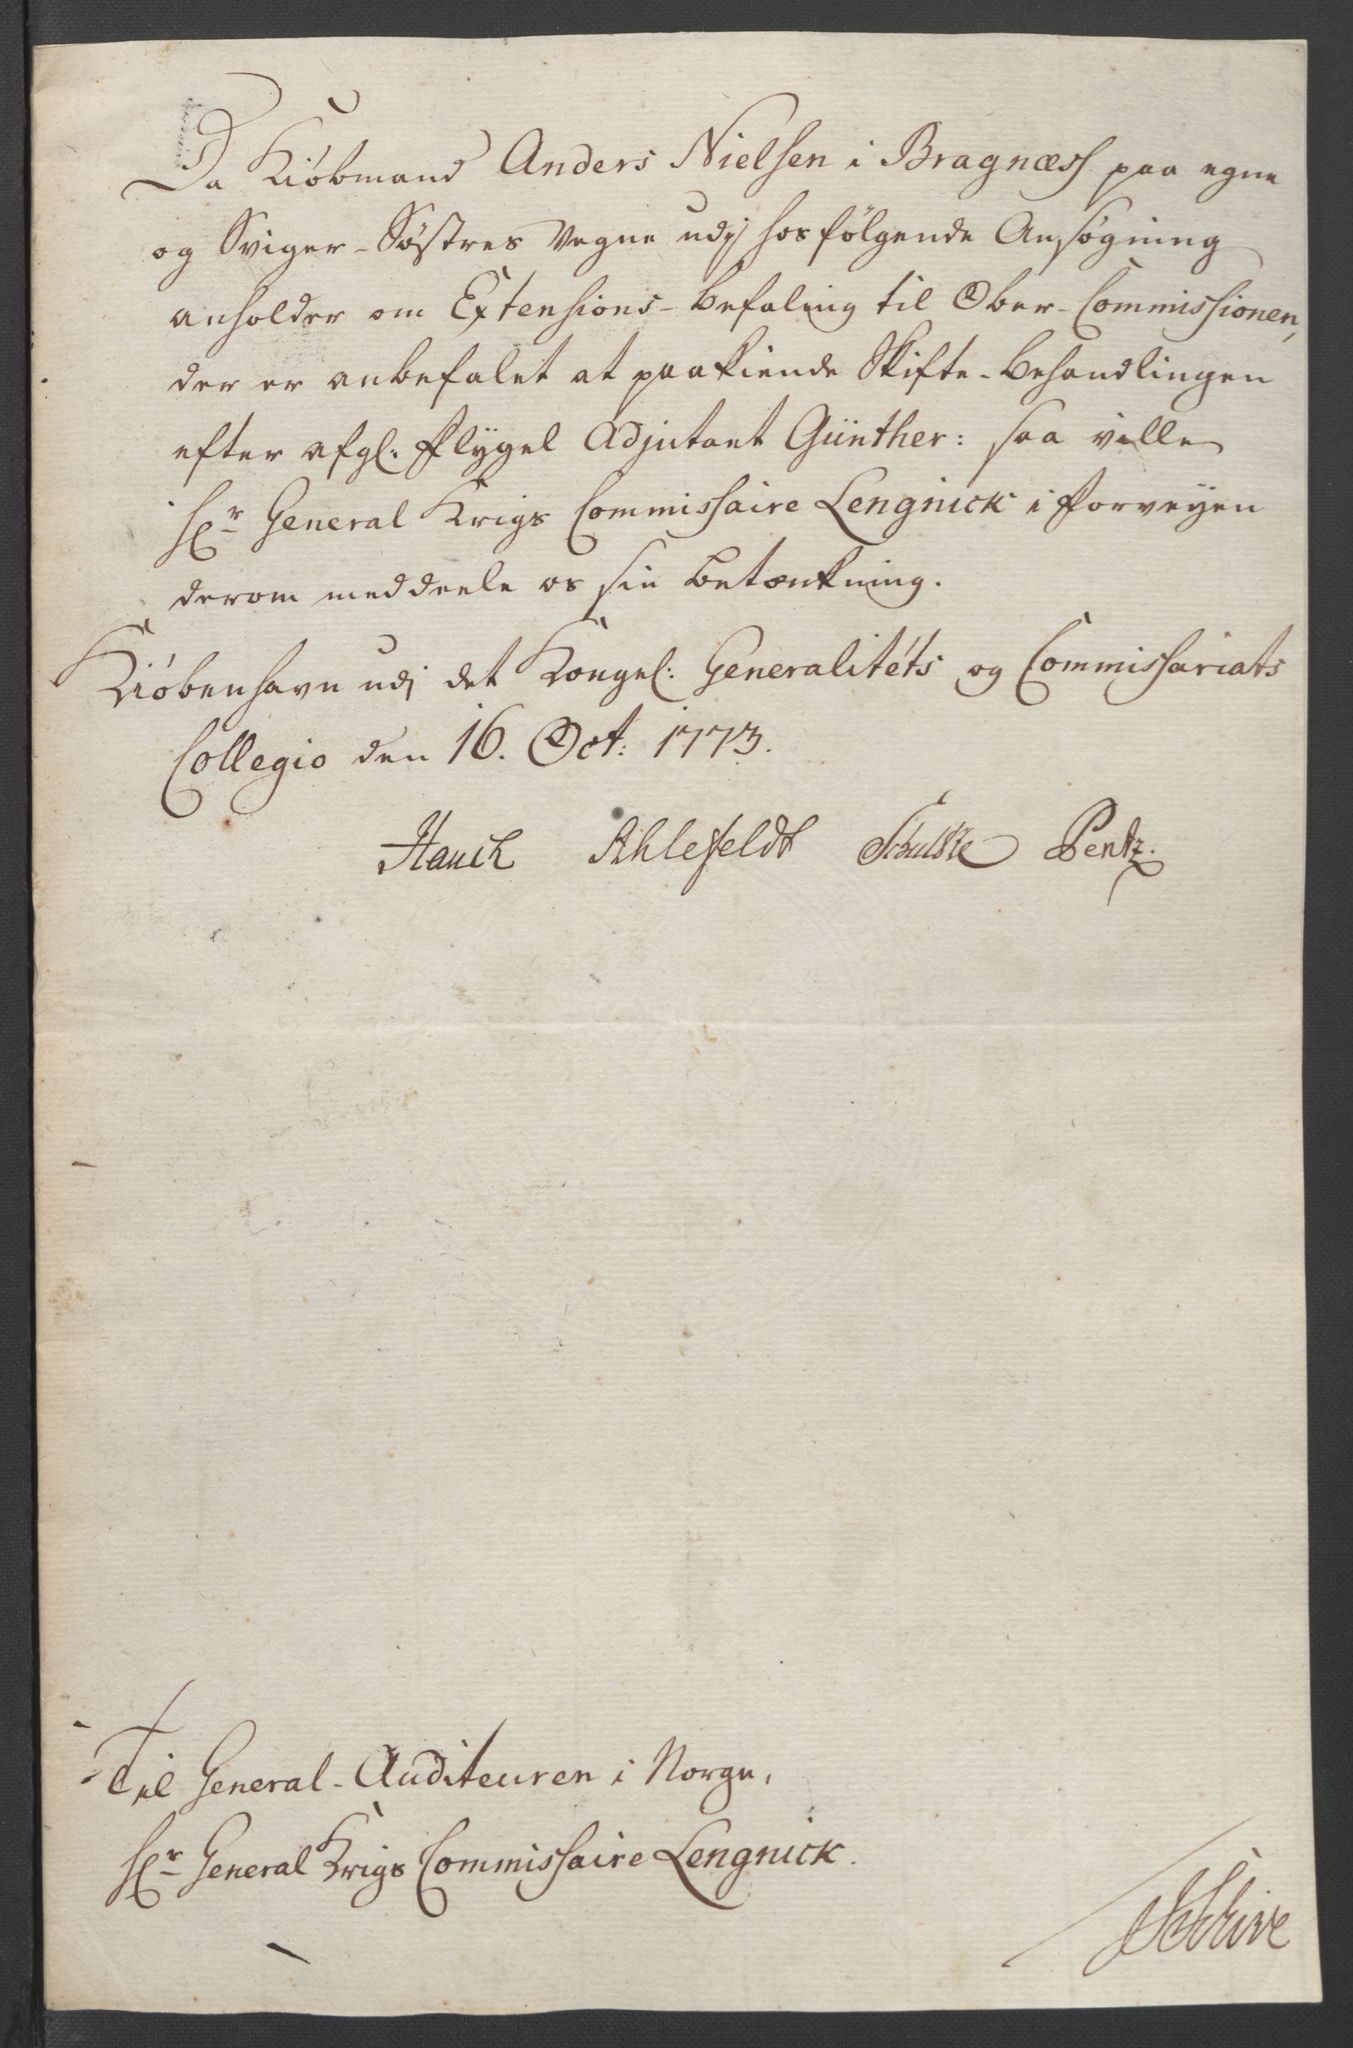 Da Kiøbmand Anders Nielsen i Bragnæss paa egne
og Sviger-Søstres Vegne udj hosfølgende Ansøgning
anholder om Extensions-befaling til Ober-Commissionen,
der er anbefalet at paakiende Skifte-behandlingen
efter afgl. Flygel Adjutant Günther: saa ville
Hr. General Krigs Commissaire Lengnick i forveyen
derom meddeele os sin betænkning.
Kiøbenhavn udj det Kongel: Generalitéts og Commissariats
Collegio den 16. Oct: 1773.
Hauch Ahlefeldt Schultze Pentz.
Til General-Auditeuren i Norge,
Hr. General Krigs Commissaire Lengnick.